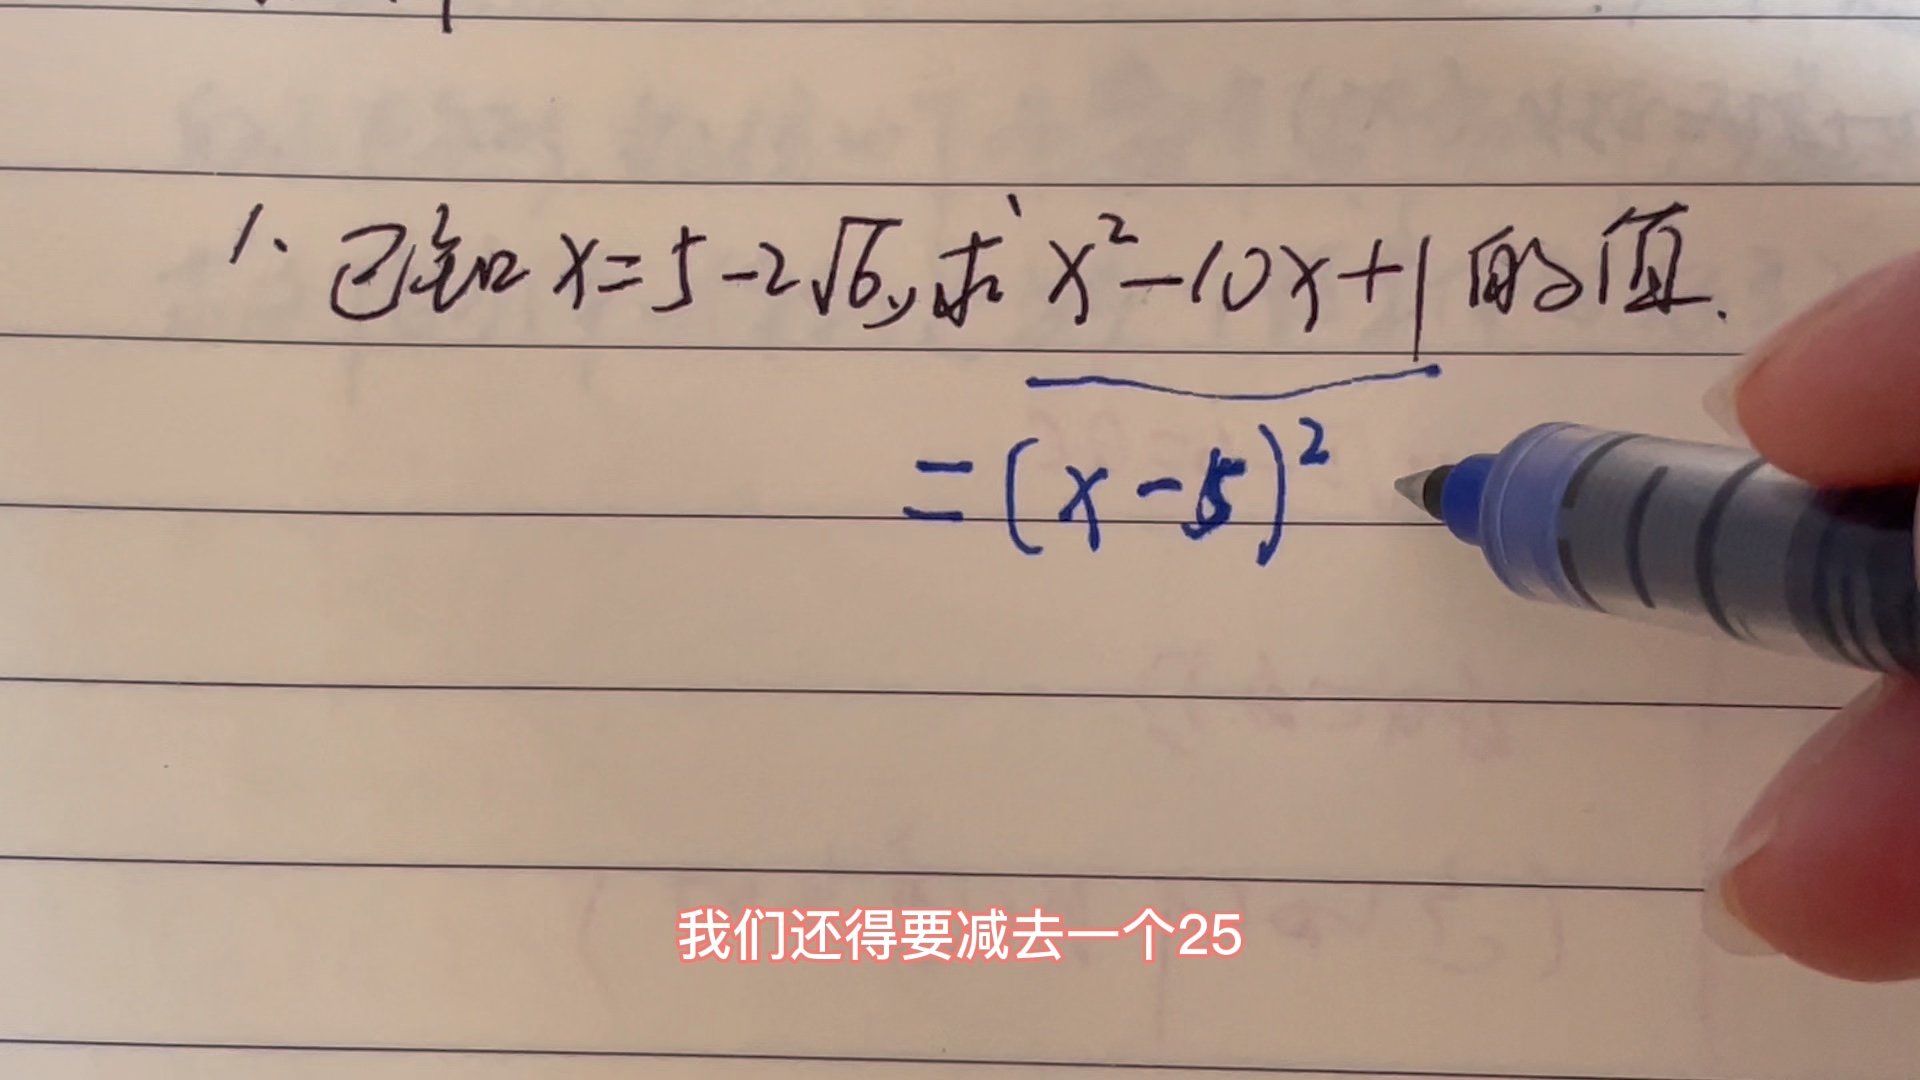 1. 已知x=5-2√6,求x²-10x+1的值.
=(x-5)²
我们还得要减去一个25